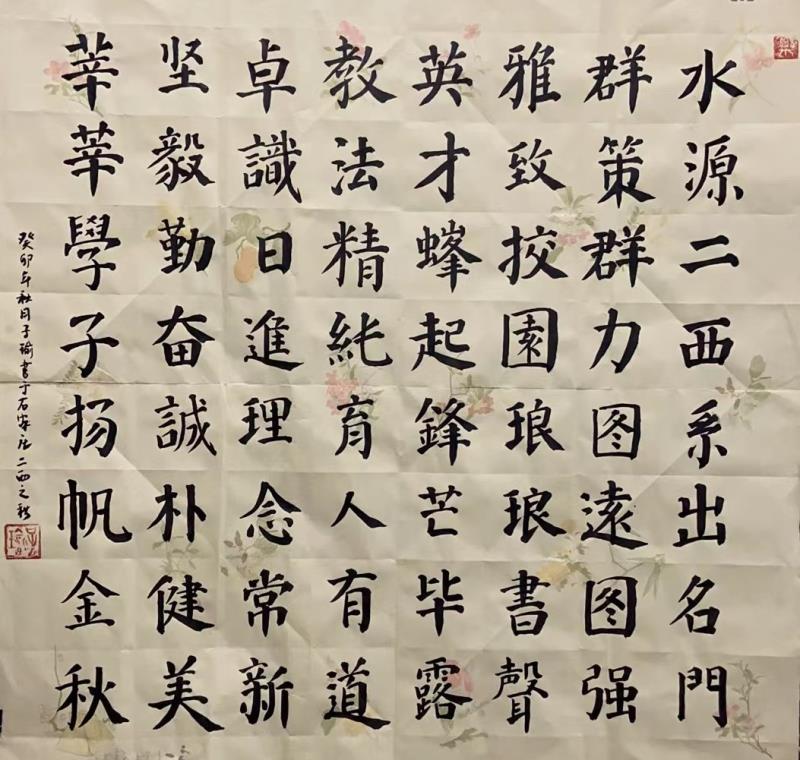 水源二西系出名門
群策群力图遠图强
雅致挍園琅琅書聲
英才蜂起鋒芒毕露
教法精純育人有道
卓識日進理念常新
坚毅勤奋誠朴健美
莘莘學子扬帆金秋
癸卯年秋月子瑜書于石家庄二西之秋